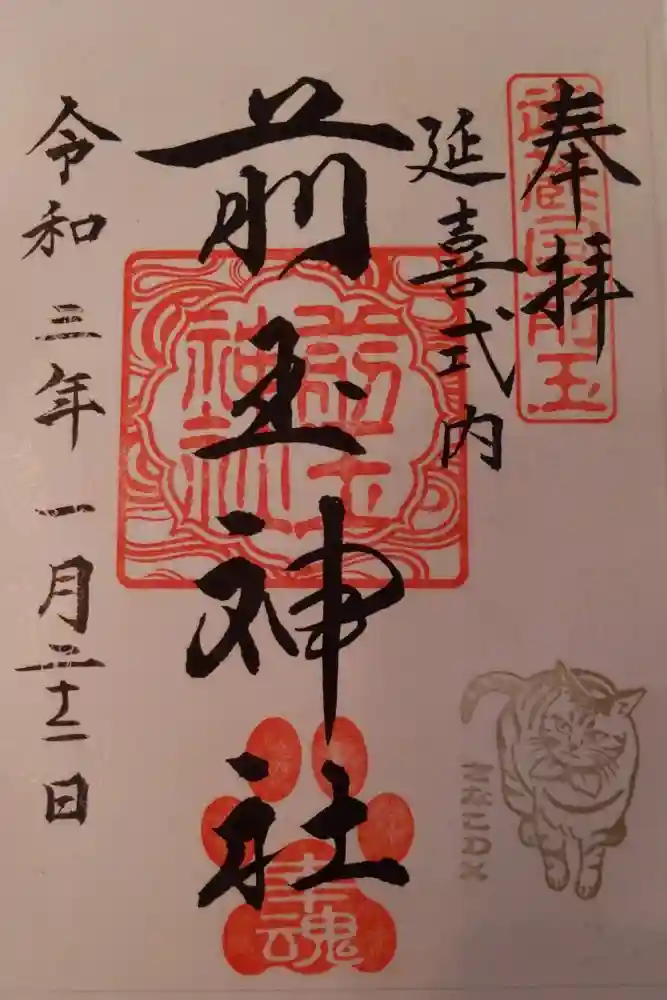 奉拝
武蔵国前玉
延喜式内
前玉神社
前玉神社
幸魂
令和三年一月二十二日